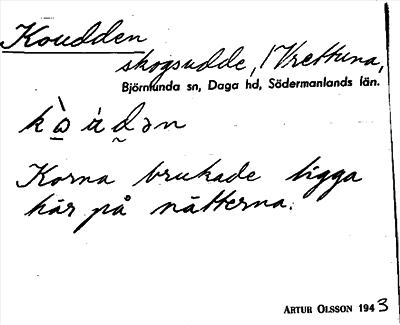 Koudden
skogsudde, Vrettuna,
Björnlunda sn, Daga hd, Södermanlands län.
Korna brukade ligga
här på nätterna.
ARTUR OLSSON 1943